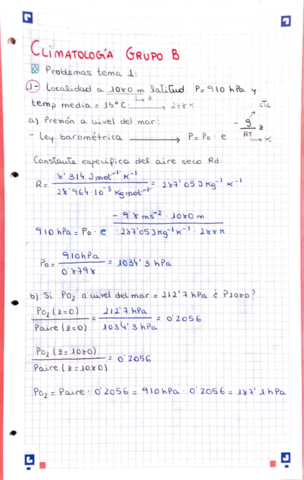 CLIMATOLOGÍA GRUPO B
Problemas tema 1:
1- Localidad a 1080 m latitud P=910 hPa y
temp media = 15ºC: → 288K
a) Presión a nivel del mar: cte
- Ley barométrica → P = P₀ · e^(-g/RT z) → K
Constante específica del aire seco Rd:
R = 8'314 J mol⁻¹ K⁻¹ / 28'964·10⁻³ Kg mol⁻¹ = 287'05 J Kg⁻¹ K⁻¹
910 hPa = P₀ · e^(-9'8 ms⁻² · 1080 m / 287'05 J Kg⁻¹ K⁻¹ · 288K)
P₀ = 910 hPa / 0'8798 = 1034'3 hPa
b) Si PO₂ a nivel del mar = 212'7 hPa ¿ P1080?
PO₂ (z=0) / Paire (z=0) = 212'7 hPa / 1034'3 hPa = 0'2056
PO₂ (z=1080) / Paire (z=1080) = 0'2056
PO₂ = Paire · 0'2056 = 910 hPa · 0'2056 = 187'1 hPa